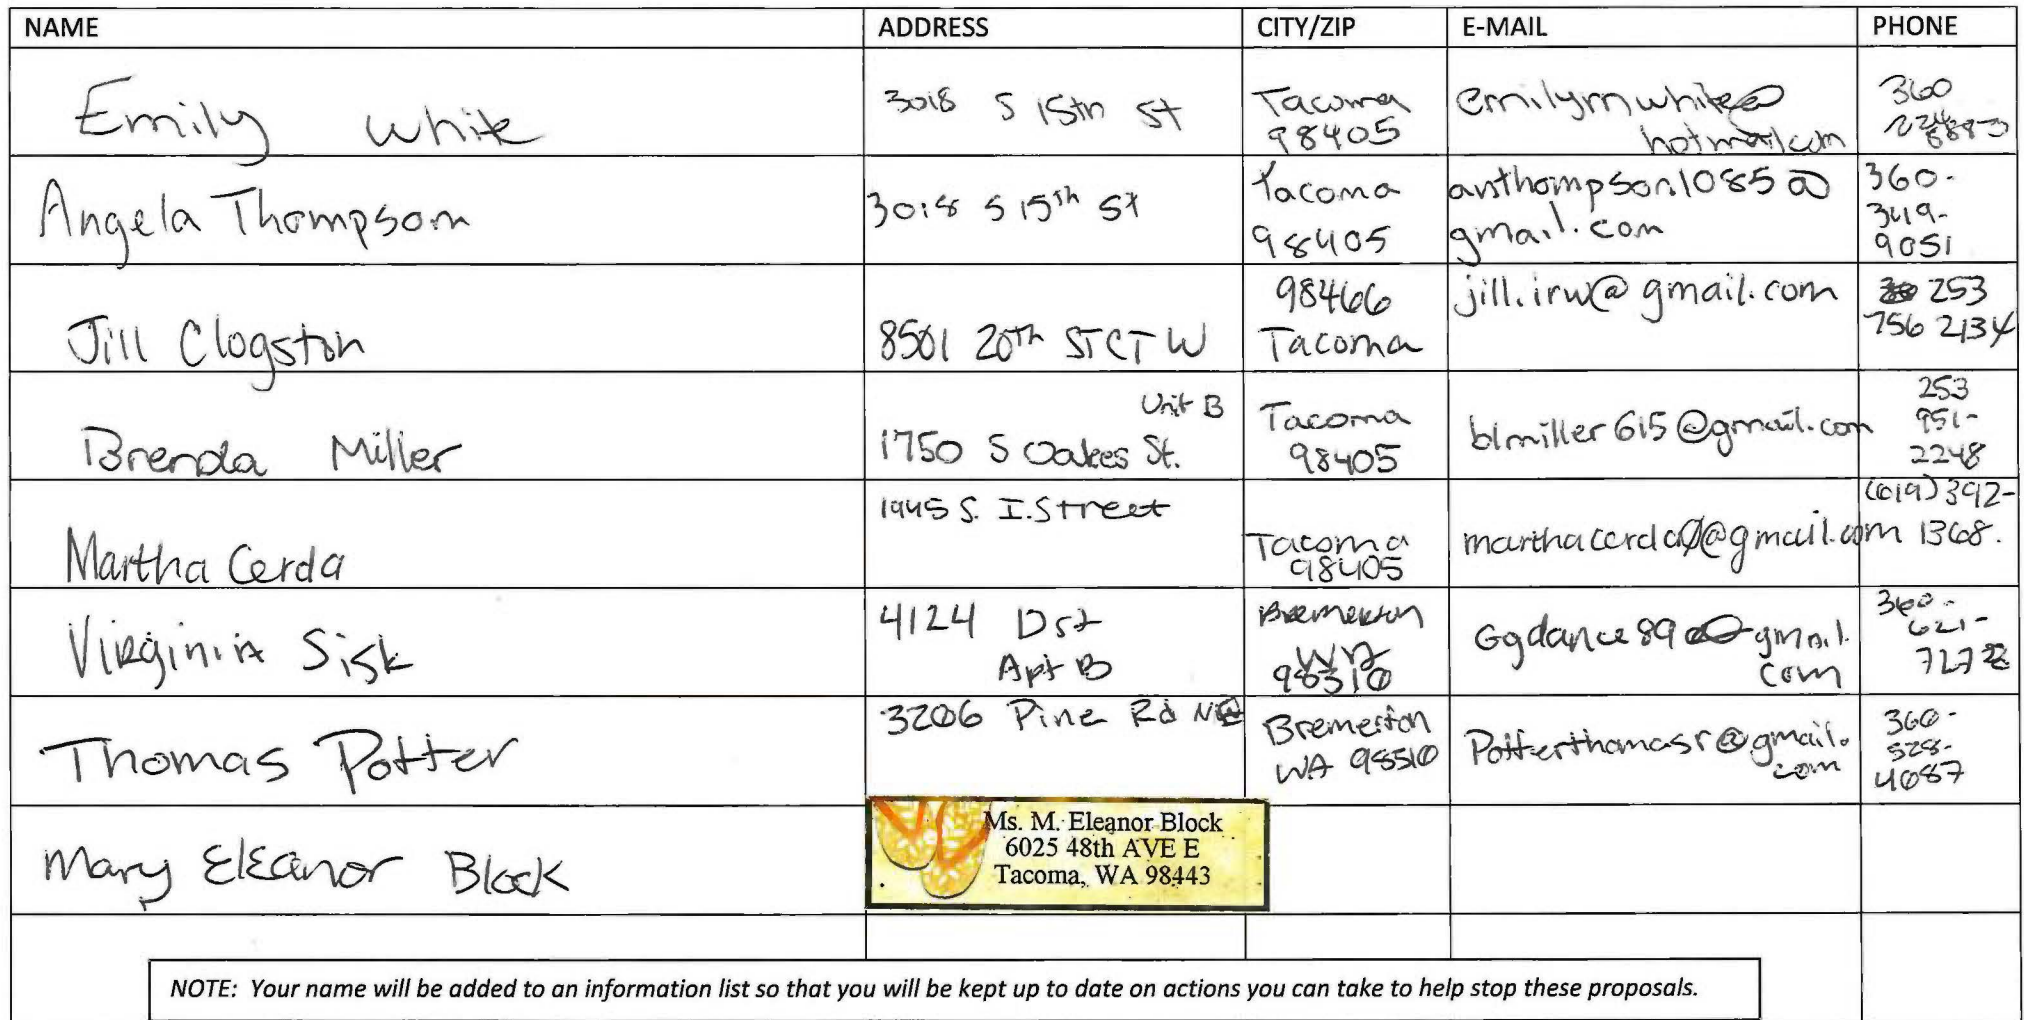 NAME ADDRESS CITY/ZIP E-MAIL PHONE
Emily White 3018 S 15th St Tacoma 98405 emilymwhite@ hotmail.com 360
Angela Thompson 3018 S 15th St Tacoma 98405 anthompson1085@ gmail.com 360- 349- 9051
Jill Clogston 8501 20th ST CT W 98466 Tacoma jill.irw@gmail.com 253 756 2134
Brenda Miller 1750 S Oakes St. Unit B Tacoma 98405 blmiller615@gmail.com 253 951- 2248
Martha Cerda 1945 S. I. Street Tacoma 98405 marthacerda0@gmail.com (619) 392- 1368.
Virginia Sisk 4124 D St Apt B Bremerton WA 98310 Ggdance89@gmail. com 360- 621- 727
Thomas Potter 3206 Pine Rd NE Bremerton WA 98510 Potterthomasr@gmail. com 360- 528- 4087
Mary Eleanor Block
Ms. M. Eleanor Block
6025 48th AVE E
Tacoma, WA 98443
NOTE: Your name will be added to an information list so that you will be kept up to date on actions you can take to help stop these proposals.